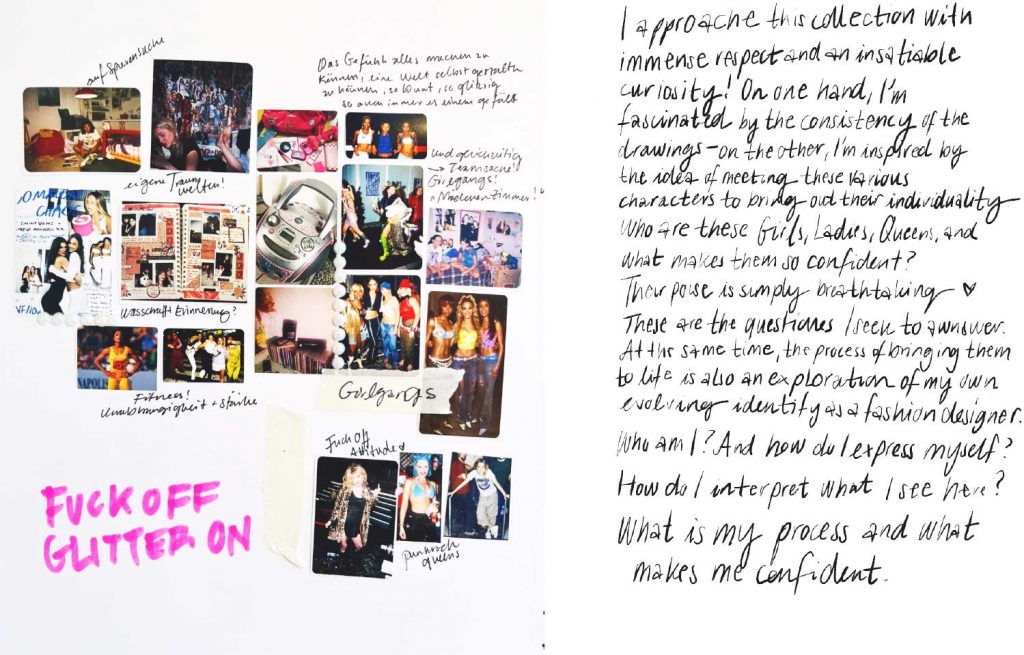 auf Spurensuche
Das Gefühl alles machen zu
können, eine Welt selbst gestalten
zu können, so bunt, so glitzrig
so auch immer es einem gefällt
und gleichzeitig
→ Teamsache!
Girlgangs!
Mädchenzimmer!
eigene Traum
welten!
CHAOS
Was schafft Erinnerung?
NAPOLIS
Fitness!
Unabhängigkeit + Stärke
Girlgangs
Fuck Off
Attitude
punkrock
queens
FUCK OFF
GLITTER ON
I approache this collection with
immense respect and an insatiable
curiosity! On one hand, I'm
fascinated by the consistency of the
drawings – on the other, I'm inspired by
the idea of meeting these various
characters to bring out their individuality
Who are these Girls, Ladies, Queens, and
what makes them so confident?
Their poise is simply breathtaking ♥
These are the questiones I seek to awnswer.
At the same time, the process of bringing them
to life is also an exploration of my own
evolving identity as a fashion designer.
Who am I? And how do I express myself?
How do I interpret what I see here?
What is my process and what
makes me confident.